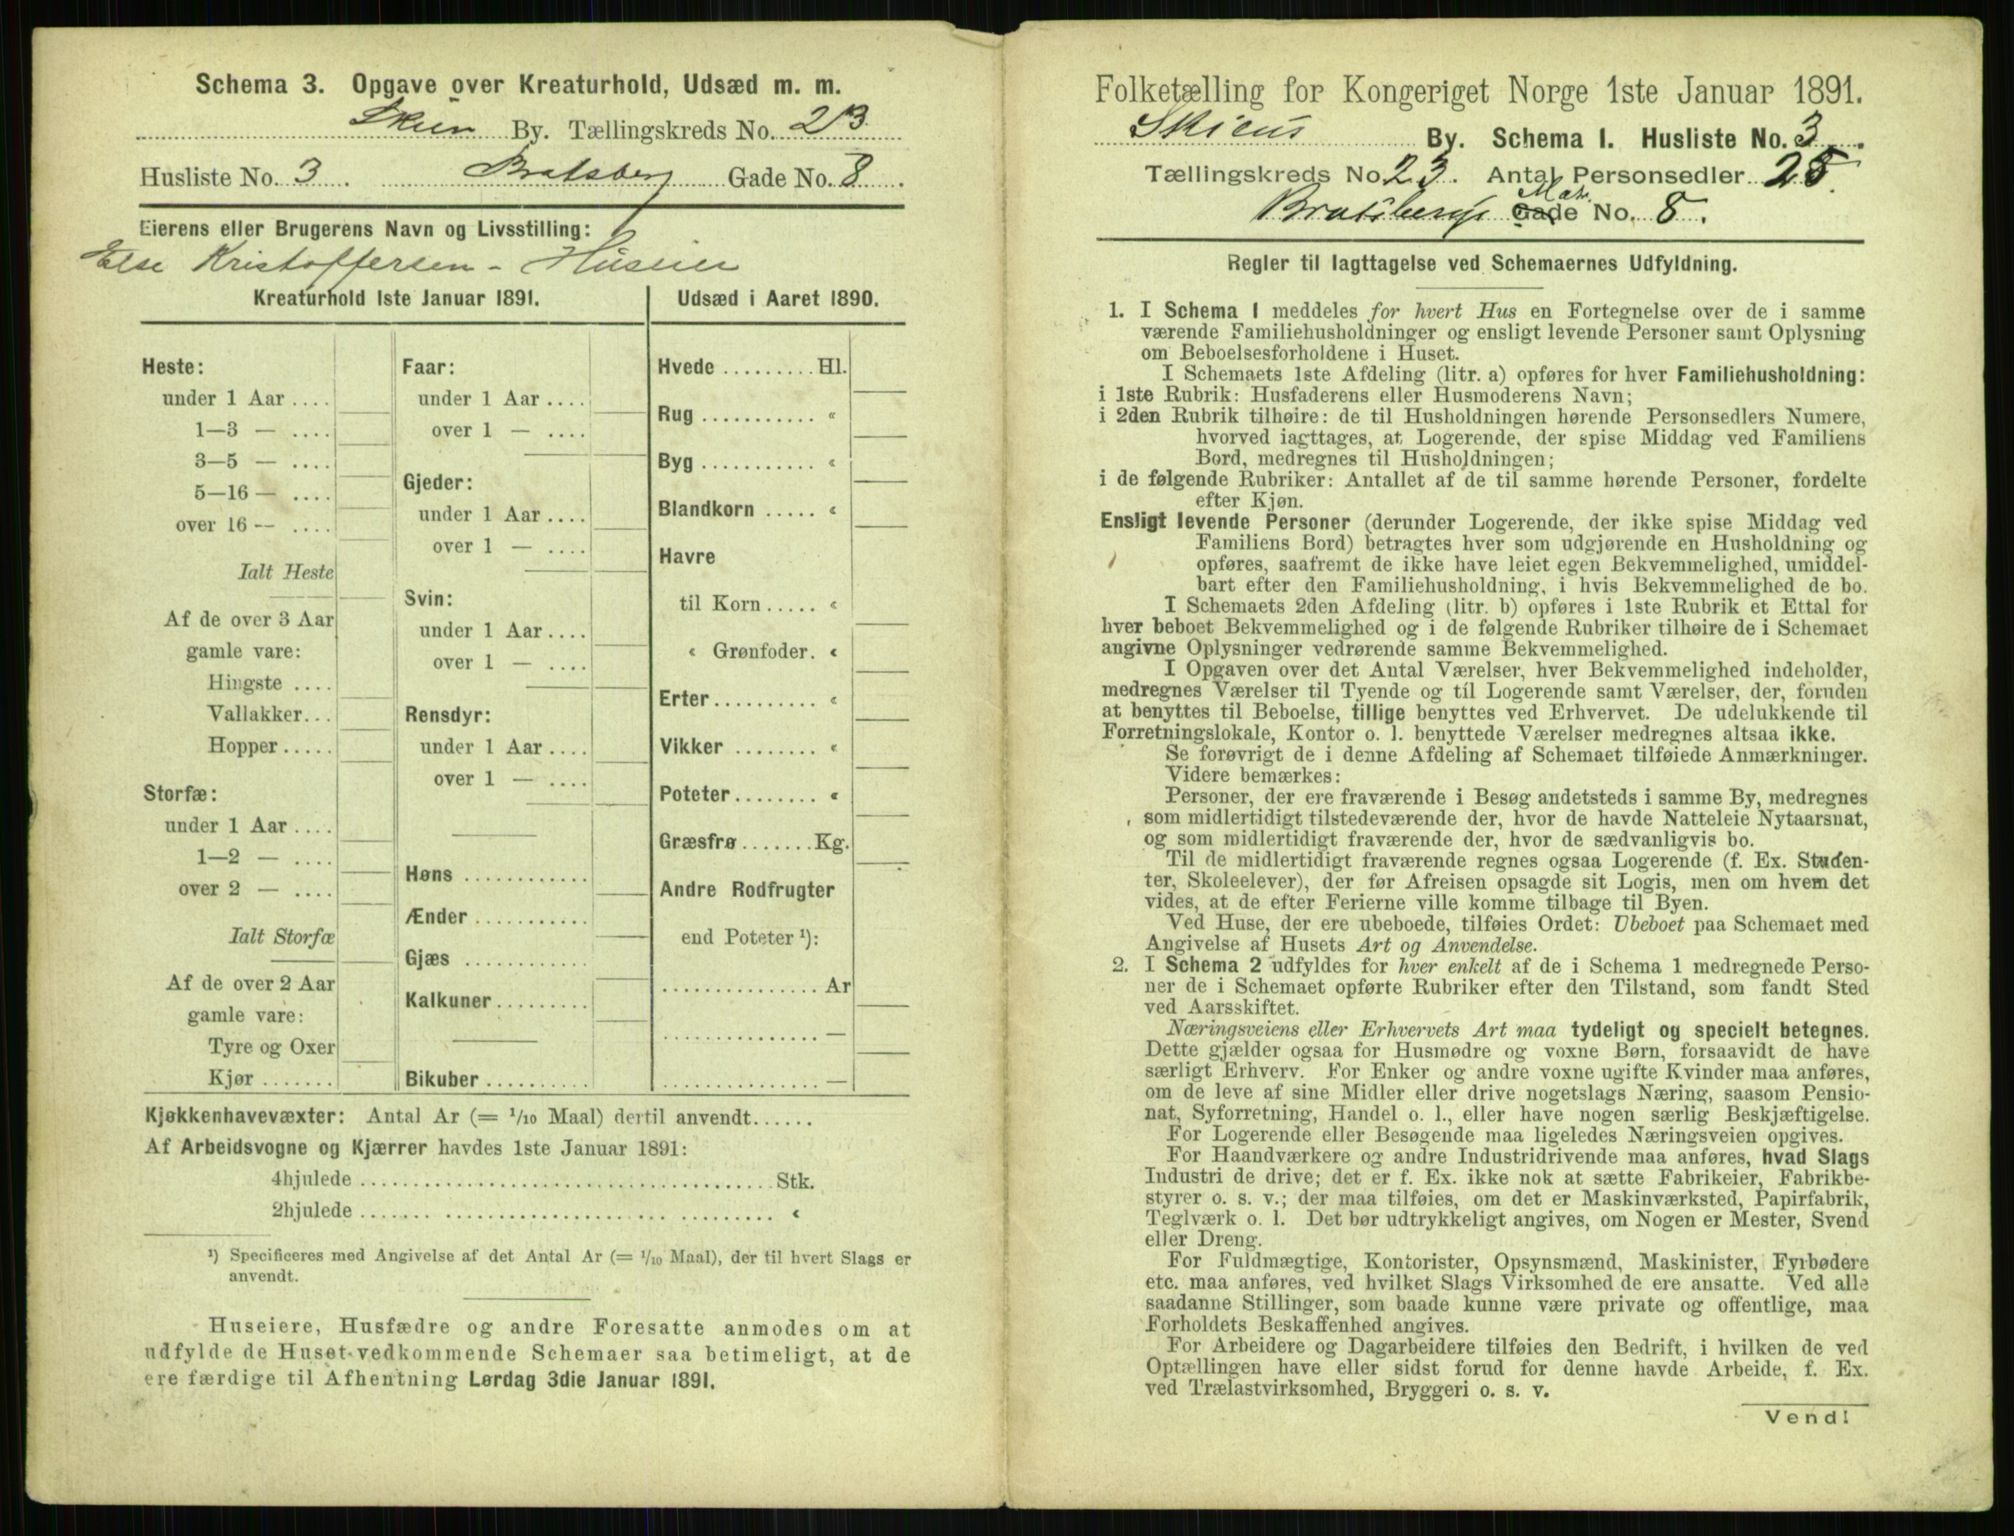 Schema 3. Opgave over Kreaturhold, Udsæd m. m.
Skien By. Tællingskreds No. 23
Husliste No. 3 Bratsberg Gade No. 8.
Eierens eller Brugerens Navn og Livsstilling:
Else Kristoffersen - Huseier
Kreaturhold 1ste Januar 1891.
Heste:
under 1 Aar ....
1—3 — ....
3—5 — ....
5—16 — ....
over 16 — ....
Ialt Heste
Af de over 3 Aar
gamle vare:
Hingste ....
Vallakker...
Hopper .....
Storfæ:
under 1 Aar ....
1—2 — ....
over 2 — ....
Ialt Storfæ
Af de over 2 Aar
gamle vare:
Tyre og Oxer
Kjør .......
Faar:
under 1 Aar ....
over 1 — ....
Gjeder:
under 1 Aar ....
over 1 — ....
Svin:
under 1 Aar ....
over 1 — ....
Rensdyr:
under 1 Aar ....
over 1 — ....
Høns ............
Ænder ...........
Gjæs ............
Kalkuner .........
Bikuber ..........
Udsæd i Aaret 1890.
Hvede ......... Hl.
Rug ........... «
Byg ........... «
Blandkorn ..... «
Havre
til Korn ..... «
« Grønfoder. «
Erter .......... «
Vikker ........ «
Poteter ........ «
Græsfrø ....... Kg.
Andre Rodfrugter
end Poteter ¹):
............... Ar
............... —
............... —
Kjøkkenhavevæxter: Antal Ar (= 1/10 Maal) dertil anvendt......
Af Arbeidsvogne og Kjærrer havdes 1ste Januar 1891:
4hjulede ........................................ Stk.
2hjulede ........................................ «
¹) Specificeres med Angivelse af det Antal Ar (= 1/10 Maal), der til hvert Slags er
anvendt.
Huseiere, Husfædre og andre Foresatte anmodes om at
udfylde de Huset vedkommende Schemaer saa betimeligt, at de
ere færdige til Afhentning Lørdag 3die Januar 1891.
Folketælling for Kongeriget Norge 1ste Januar 1891.
Skiens By. Schema 1. Husliste No. 3.
Tællingskreds No. 23. Antal Personsedler 25.
Mat.
Bratsberg Gade No. 8.
Regler til Iagttagelse ved Schemaernes Udfyldning.
1. I Schema 1 meddeles for hvert Hus en Fortegnelse over de i samme
værende Familiehusholdninger og ensligt levende Personer samt Oplysning
om Beboelsesforholdene i Huset.
I Schemaets 1ste Afdeling (litr. a) opføres for hver Familiehusholdning:
i 1ste Rubrik: Husfaderens eller Husmoderens Navn;
i 2den Rubrik tilhøire: de til Husholdningen hørende Personsedlers Numere,
hvorved iagttages, at Logerende, der spise Middag ved Familiens
Bord, medregnes til Husholdningen;
i de følgende Rubriker: Antallet af de til samme hørende Personer, fordelte
efter Kjøn.
Ensligt levende Personer (derunder Logerende, der ikke spise Middag ved
Familiens Bord) betragtes hver som udgjørende en Husholdning og
opføres, saafremt de ikke have leiet egen Bekvemmelighed, umiddel-
bart efter den Familiehusholdning, i hvis Bekvemmelighed de bo.
I Schemaets 2den Afdeling (litr. b) opføres i 1ste Rubrik et Ettal for
hver beboet Bekvemmelighed og i de følgende Rubriker tilhøire de i Schemaet
angivne Oplysninger vedrørende samme Bekvemmelighed.
I Opgaven over det Antal Værelser, hver Bekvemmelighed indeholder,
medregnes Værelser til Tyende og til Logerende samt Værelser, der, foruden
at benyttes til Beboelse, tillige benyttes ved Erhvervet. De udelukkende til
Forretningslokale, Kontor o. l. benyttede Værelser medregnes altsaa ikke.
Se forøvrigt de i denne Afdeling af Schemaet tilføiede Anmærkninger.
Videre bemærkes:
Personer, der ere fraværende i Besøg andetsteds i samme By, medregnes
som midlertidigt tilstedeværende der, hvor de havde Natteleie Nytaarsnat,
og som midlertidigt fraværende der, hvor de sædvanligvis bo.
Til de midlertidigt fraværende regnes ogsaa Logerende (f. Ex. Studen-
ter, Skoleelever), der før Afreisen opsagde sit Logis, men om hvem det
vides, at de efter Ferierne ville komme tilbage til Byen.
Ved Huse, der ere ubeboede, tilføies Ordet: Ubeboet paa Schemaet med
Angivelse af Husets Art og Anvendelse.
2. I Schema 2 udfyldes for hver enkelt af de i Schema 1 medregnede Perso-
ner de i Schemaet opførte Rubriker efter den Tilstand, som fandt Sted
ved Aarsskiftet.
Næringsveiens eller Erhvervets Art maa tydeligt og specielt betegnes.
Dette gjælder ogsaa for Husmødre og voxne Børn, forsaavidt de have
særligt Erhverv. For Enker og andre voxne ugifte Kvinder maa anføres,
om de leve af sine Midler eller drive nogetslags Næring, saasom Pensio-
nat, Syforretning, Handel o. l., eller have nogen særlig Beskjæftigelse.
For Logerende eller Besøgende maa ligeledes Næringsveien opgives.
For Haandværkere og andre Industridrivende maa anføres, hvad Slags
Industri de drive; det er f. Ex. ikke nok at sætte Fabrikeier, Fabrikbe-
styrer o. s. v.; der maa tilføies, om det er Maskinværksted, Papirfabrik,
Teglværk o. l. Det bør udtrykkeligt angives, om Nogen er Mester, Svend
eller Dreng.
For Fuldmægtige, Kontorister, Opsynsmænd, Maskinister, Fyrbødere
etc. maa anføres, ved hvilket Slags Virksomhed de ere ansatte. Ved alle
saadanne Stillinger, som baade kunne være private og offentlige, maa
Forholdets Beskaffenhed angives.
For Arbeidere og Dagarbeidere tilføies den Bedrift, i hvilken de ved
Optællingen have eller sidst forud for denne havde Arbeide, f. Ex.
ved Trælastvirksomhed, Bryggeri o. s. v.
Vend!